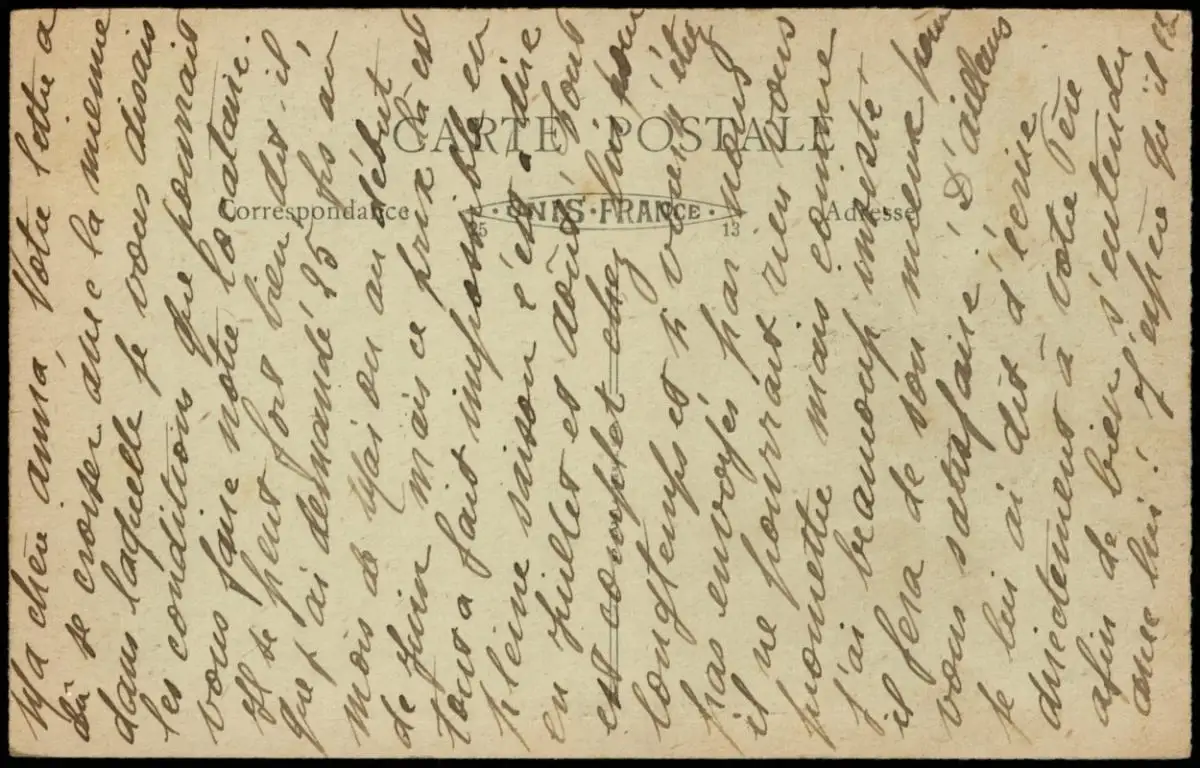 CARTE POSTALE
Correspondance
UNIS-FRANCE
25 13
Adresse
Ma chère anna, Votre lettre a
dû se croiser avec la mienne
dans laquelle je vous disais
les conditions que pourrait
vous faire notre locataire.
Il se peut fort bien dit-il
que j'ai demandé 25 frs au
mois de Mai ou au début
de Juin mais ce prix là est
tout a fait impossible en
pleine saison c'est-à-dire
en Juillet et août. Tout
est complet chez lui pour
longtemps et si vous n'étiez
pas envoyés par nous
il ne pourrait rien vous
promettre mais comme
j'ai beaucoup insisté
il fera de son mieux pour
vous satisfaire. D'ailleurs
je lui ai dit d'écrire
directement à votre Père
afin de bien s'entendre
avec lui. J'espère qu'il